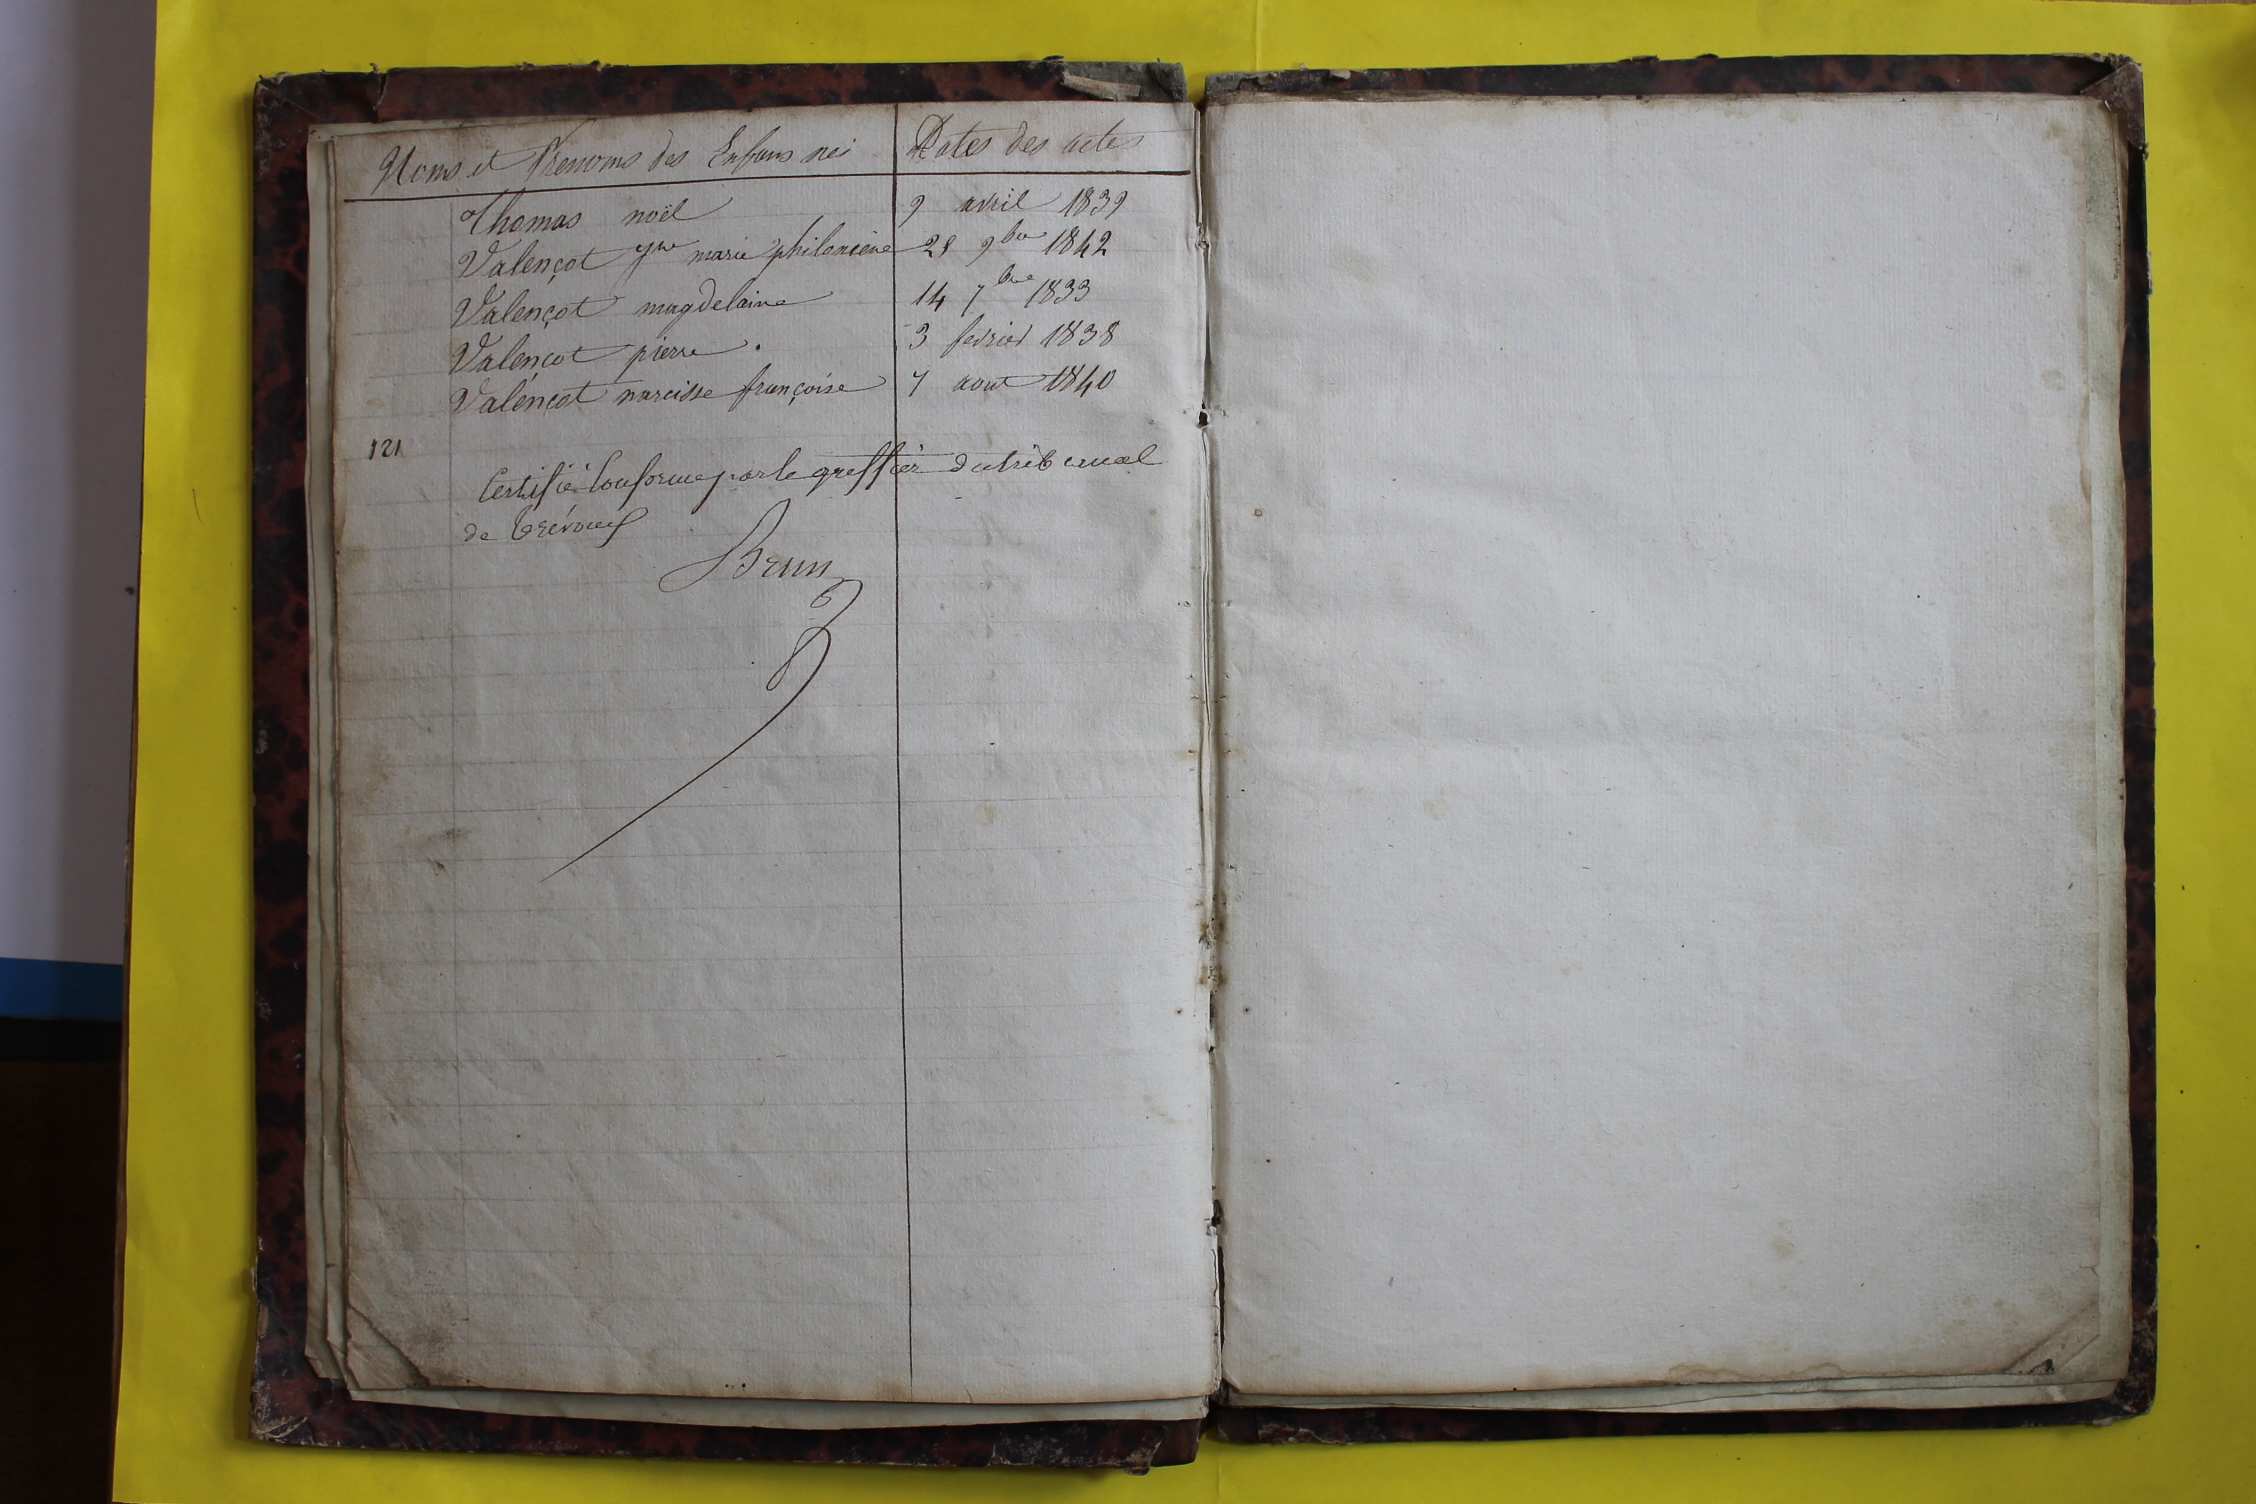 Noms et Prenoms des Enfans nés Dates des actes
Thomas noël 9 avril 1839
Valençot marie philomène 28 9bre 1842
Valençot magdelaine 14 7bre 1833
Valençot pierre . 3 fevrier 1838
Valençot narcisse françoise 7 aout 1840
121
Certifié Conforme par le greffier du tribunal
de Trévoux
Brun